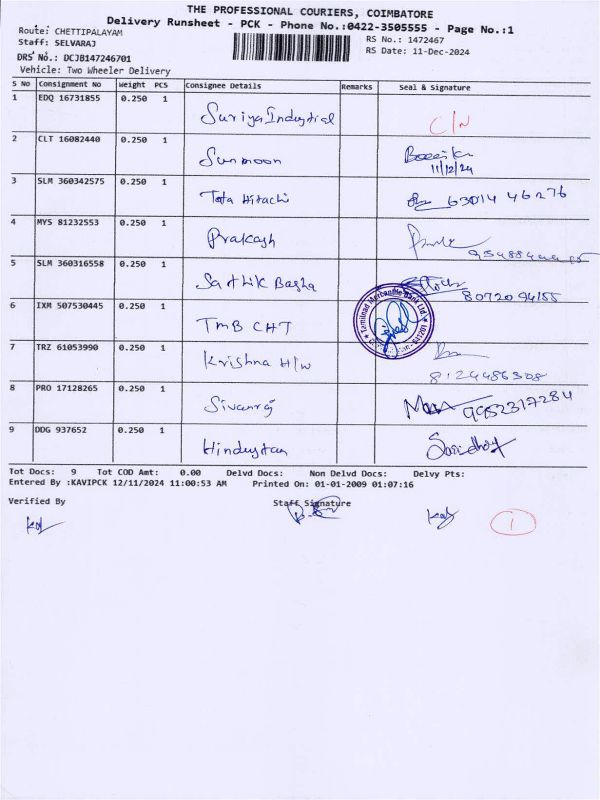 THE PROFESSIONAL COURIERS, COIMBATORE
Delivery Runsheet - PCK - Phone No.:0422-3505555 - Page No.:1
Route: CHETTIPALAYAM
RS No.: 1472467
Staff: SELVARAJ
RS Date: 11-Dec-2024
DRS No.: DCJB147246701
Vehicle: Two Wheeler Delivery
S No Consignment No Weight PCS Consignee Details Remarks Seal & Signature
1 EDQ 16731855 0.250 1 Suriya Industrial C/N
2 CLT 16082440 0.250 1 Sunmoon
11/12/24
3 SLM 360342575 0.250 1 Tata Hitachi 63014 46276
4 MYS 81232553 0.250 1 Prakash
5 SLM 360316558 0.250 1 Sathik Basha
8072094155
6 IXM 507530445 0.250 1 TMB CHT Tamilnad Mercantile Bank Ltd
7 TRZ 61053990 0.250 1 Krishna H/W
8124486308
8 PRO 17128265 0.250 1 Sivanraj 9952317284
9 DDG 937652 0.250 1 Hindustan
Tot Docs: 9 Tot COD Amt: 0.00 Delvd Docs: Non Delvd Docs: Delvy Pts:
Entered By :KAVIPCK 12/11/2024 11:00:53 AM Printed On: 01-01-2009 01:07:16
Verified By Staff Signature
1